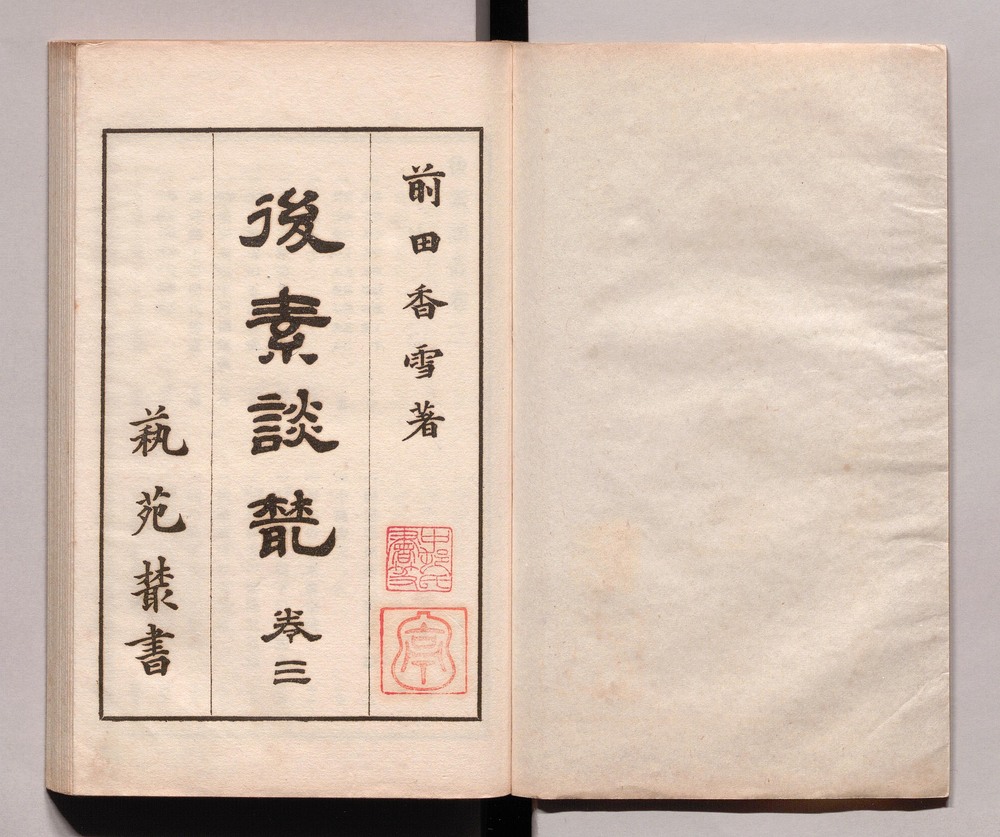 前田香雪著
後素談叢 卷三
蓺苑叢書
亭